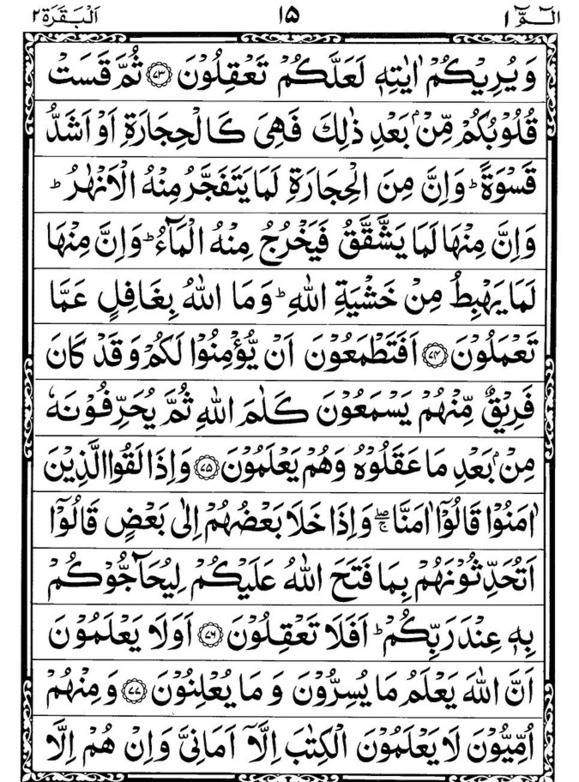 الٓمّٓ ١ ١٥ اَلْبَقَرَة ٢
وَيُرِيْكُمْ اٰيٰتِهٖ لَعَلَّكُمْ تَعْقِلُوْنَ ﴿۷۳﴾ ثُمَّ قَسَتْ
قُلُوْبُكُمْ مِّنْۢ بَعْدِ ذٰلِكَ فَهِیَ كَالْحِجَارَةِ اَوْ اَشَدُّ
قَسْوَةً ؕ وَاِنَّ مِنَ الْحِجَارَةِ لَمَا يَتَفَجَّرُ مِنْهُ الْاَنْهٰرُ ؕ
وَاِنَّ مِنْهَا لَمَا يَشَّقَّقُ فَيَخْرُجُ مِنْهُ الْمَآءُ ؕ وَاِنَّ مِنْهَا
لَمَا يَهْبِطُ مِنْ خَشْيَةِ اللّٰهِ ؕ وَمَا اللّٰهُ بِغَافِلٍ عَمَّا
تَعْمَلُوْنَ ﴿۷۴﴾ اَفَتَطْمَعُوْنَ اَنْ يُّؤْمِنُوْا لَكُمْ وَقَدْ كَانَ
فَرِيْقٌ مِّنْهُمْ يَسْمَعُوْنَ كَلٰمَ اللّٰهِ ثُمَّ يُحَرِّفُوْنَهٗ
مِنْۢ بَعْدِ مَا عَقَلُوْهُ وَهُمْ يَعْلَمُوْنَ ﴿۷۵﴾ وَاِذَا لَقُوا الَّذِيْنَ
اٰمَنُوْا قَالُوْۤا اٰمَنَّا ۖۚ وَاِذَا خَلَا بَعْضُهُمْ اِلٰی بَعْضٍ قَالُوْۤا
اَتُحَدِّثُوْنَهُمْ بِمَا فَتَحَ اللّٰهُ عَلَيْكُمْ لِيُحَآجُّوْكُمْ
بِهٖ عِنْدَ رَبِّكُمْ ؕ اَفَلَا تَعْقِلُوْنَ ﴿۷۶﴾ اَوَلَا يَعْلَمُوْنَ
اَنَّ اللّٰهَ يَعْلَمُ مَا يُسِرُّوْنَ وَمَا يُعْلِنُوْنَ ﴿۷۷﴾ وَمِنْهُمْ
اُمِّيُّوْنَ لَا يَعْلَمُوْنَ الْكِتٰبَ اِلَّاۤ اَمَانِیَّ وَاِنْ هُمْ اِلَّا